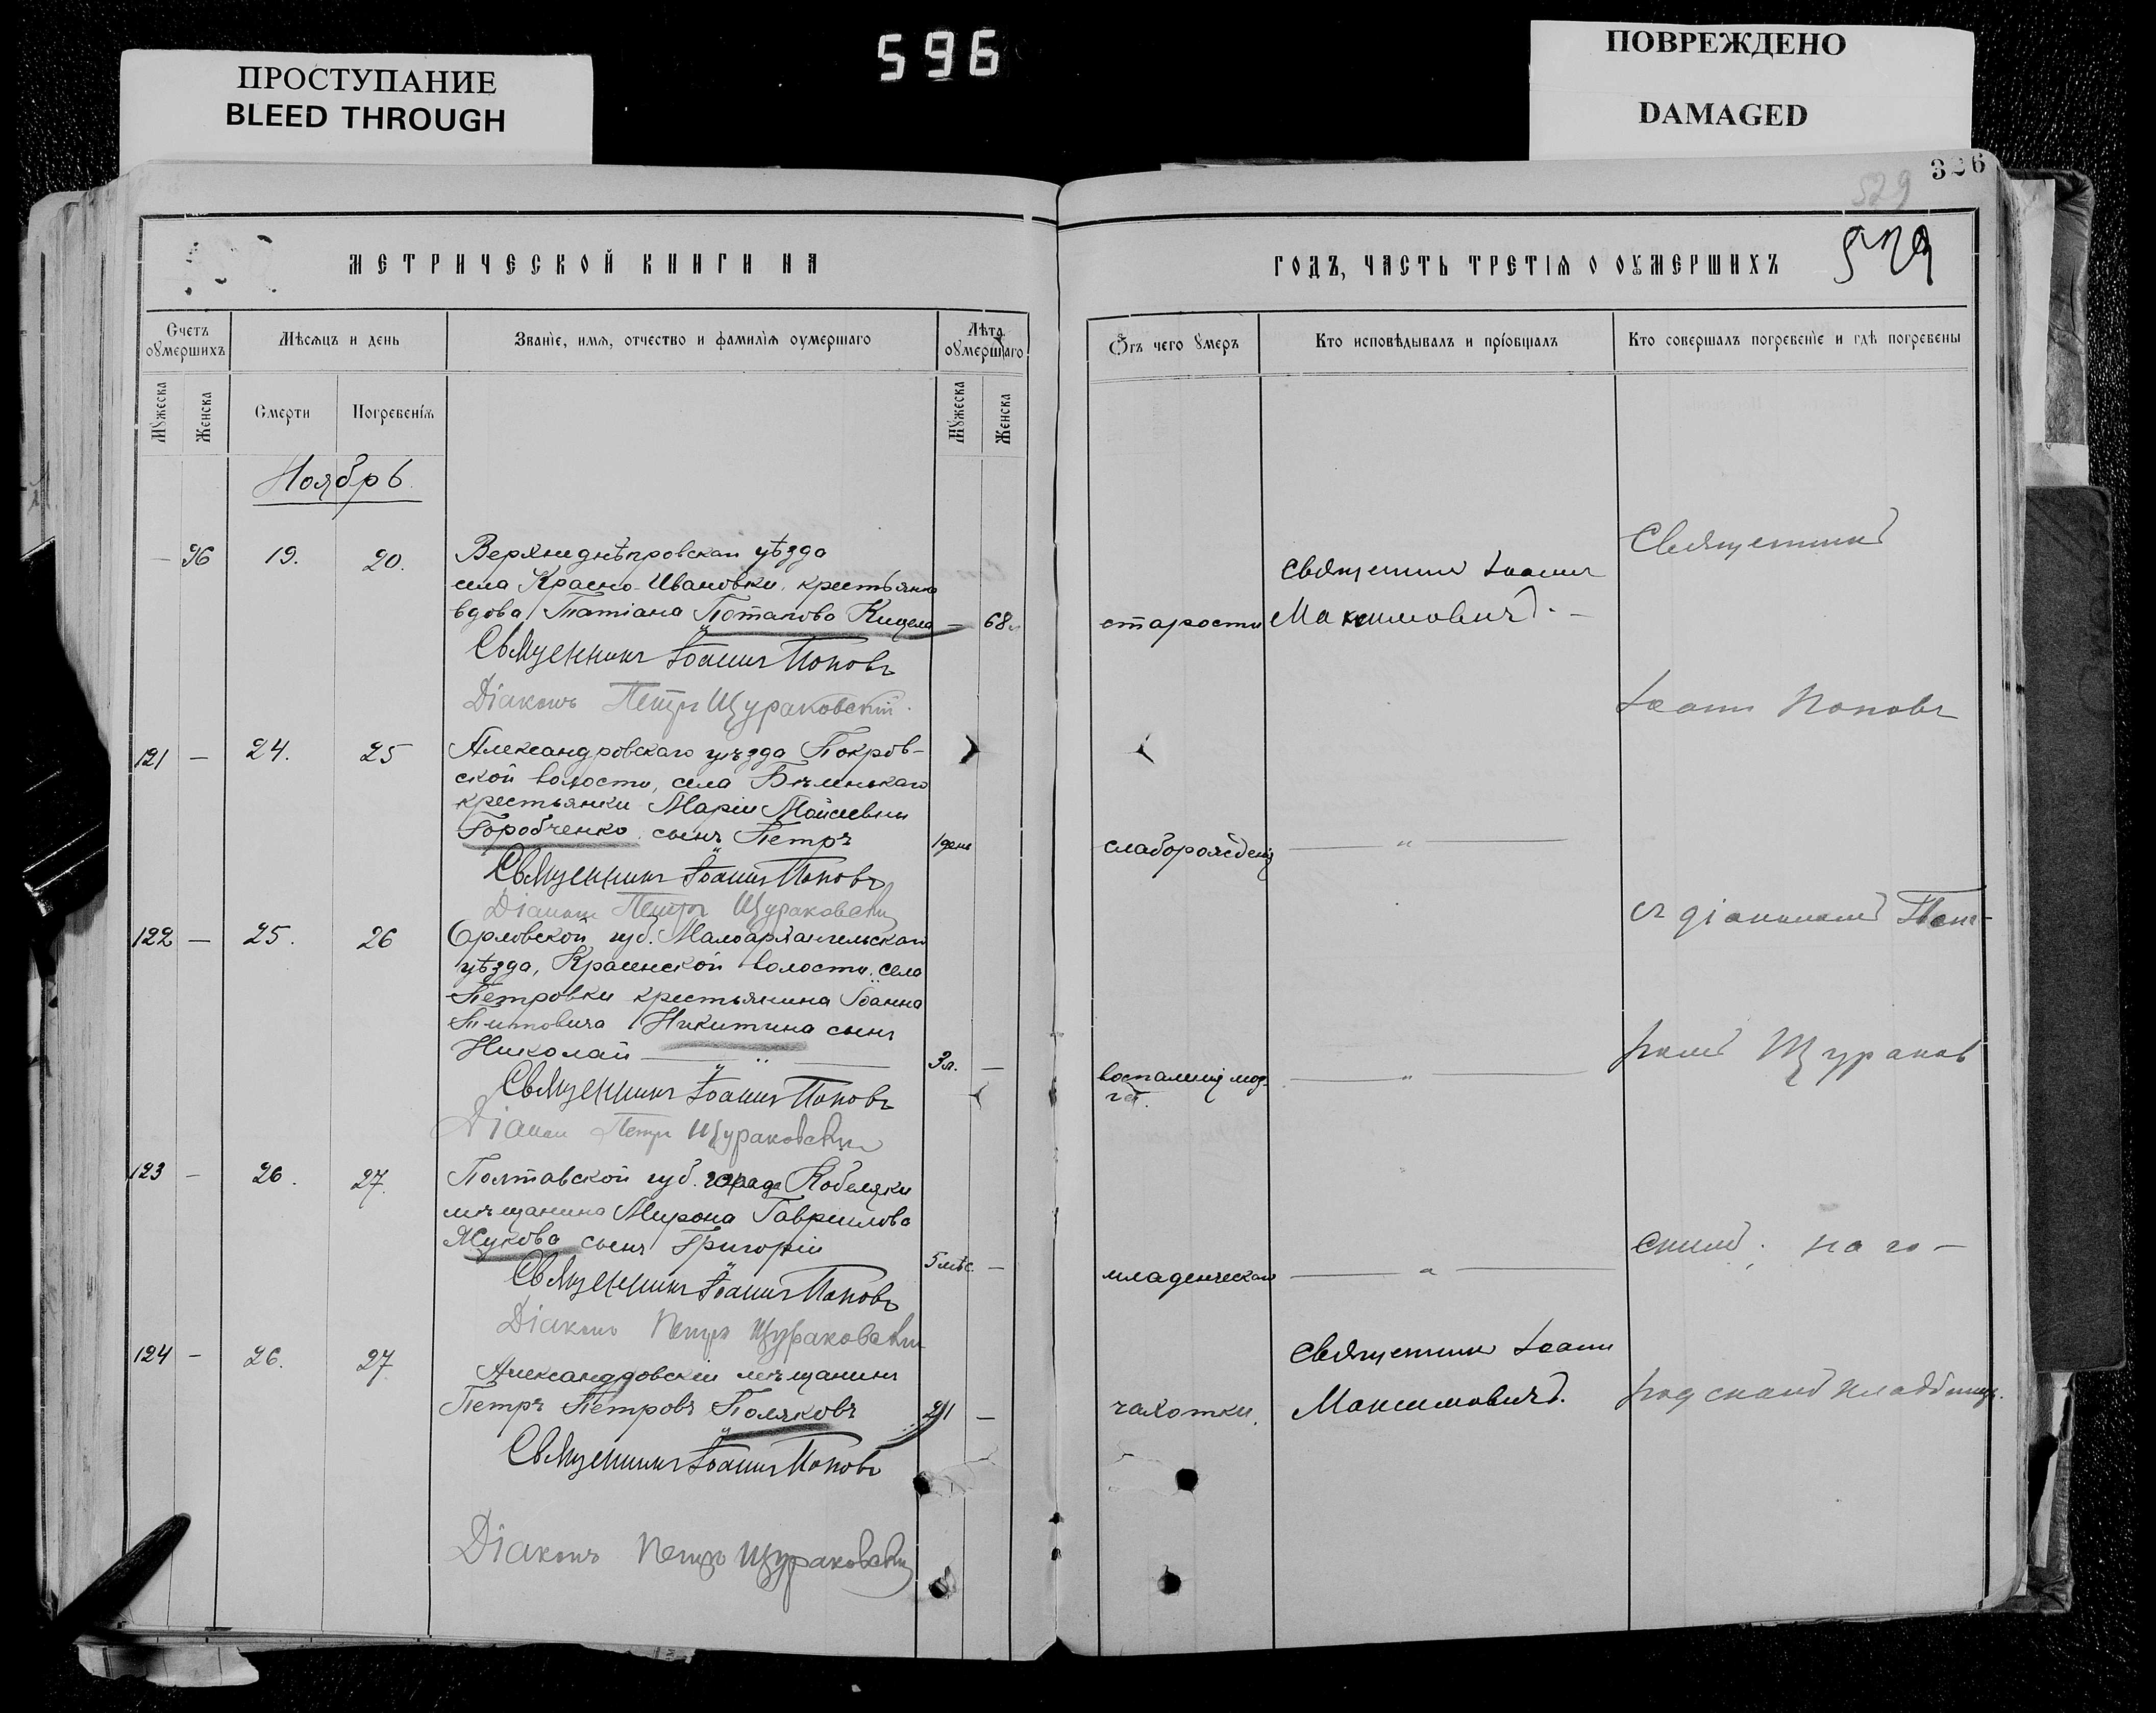 ПРОСТУПАНИЕ
BLEED THROUGH
596
ПОВРЕЖДЕНО
DAMAGED
326
529
529
МЕТРИЧЕСКОЙ КНИГИ НА
Счетъ оумершихъ
Мѣсяцъ и день
Званіе, имя, отчество и фамилія оумершаго
Лѣта оумершаго
Мужеска
Женска
Смерти
Погребенія
Мужеска
Женска
Ноябрь
— 96 19. 20. Верхнеднѣпровскаго уѣзда
села Красно-Ивановки, крестьянка
вдова Татіана Потапова Кицела — 68
Священникъ Іоаннъ Поповъ
Діаконъ Петръ Щураковскій.
121 — 24. 25 Александровскаго уѣзда Покров-
ской волости, села Бѣленькаго
крестьянки Маріи Мойсіевны
Горобченко сынъ Петръ 1 день
Священникъ Іоаннъ Поповъ
Діаконъ Петръ Щураковскій
122 — 25. 26 Орловской губ. Малоархангельскаго
уѣзда, волости, села
Петровки крестьянина Іоанна
Титовича Никитина сынъ
Николай 3 л. —
Священникъ Іоаннъ Поповъ
Діаконъ Петръ Щураковскій
123 — 26. 27. Полтавской губ. города Кобеляки
мѣщанина Мирона Гаврилова
Жукова сынъ Григорій 5 мѣс —
Священникъ Іоаннъ Поповъ
Діаконъ Петръ Щураковскій
124 — 26. 27 Александровскій мѣщанинъ
Петръ Петровъ Поляковъ 21 —
Священникъ Іоаннъ Поповъ
Діаконъ Петръ Щураковскій
ГОДЪ, ЧАСТЬ ТРЕТІЯ О ОУМЕРШИХЪ
Отъ чего умеръ
Кто исповѣдывалъ и пріобщалъ
Кто совершалъ погребеніе и гдѣ погребены
старости
Священникъ Іоаннъ
Максимовичъ. —
слаборожденія — „ —
воспаленія моз-
га. — „ —
младенческая — „ —
чахотки.
Священникъ Іоаннъ
Максимовичъ.
Священникъ
Іоаннъ Поповъ
съ діакономъ Пет-
ромъ Щураков
скимъ. на го-
родскомъ кладбищѣ.